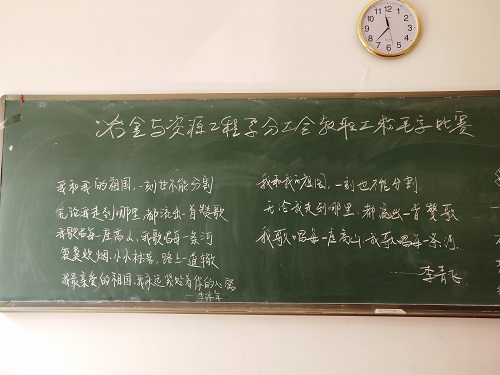 冶金与资源工程学分工会教职工粉笔字比赛
我和我的祖国，一刻也不能分割
无论我走到哪里，都流出一首赞歌
我歌唱每一座高山，我歌唱每一条河
袅袅炊烟，小小村落，路上一道辙
我最亲爱的祖国，我永远紧贴着你的心窝
我和我的祖国，一刻也不能分割，
无论我走到哪里，都流出一首赞歌
我歌唱每一座高山，我歌唱每一条河，
——李青飞